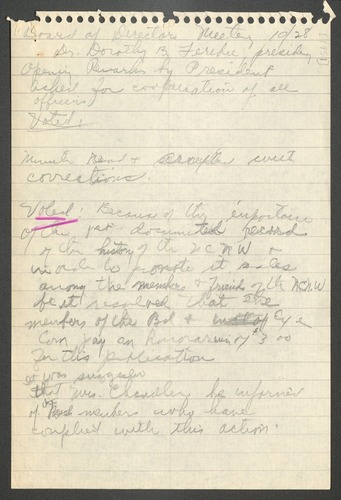 Board of Directors Meeting 10/28
Dr. Dorothy B. Ferebee, presiding
Opening Remarks by President
asked for cooperation of all
officers
Voted:
Minutes Read & accepted with
corrections.
Voted: Because of the importance
of the 1st documented record
of the history of the NCNW &
in order to promote its sales
among the members & friends of the NCNW
be it resolved that the
members of the Bd & Exe
Com pay an honorarium of $3.00
for this publication
It was
that Mrs. Chandler be informed
of members who have
complied with this action.